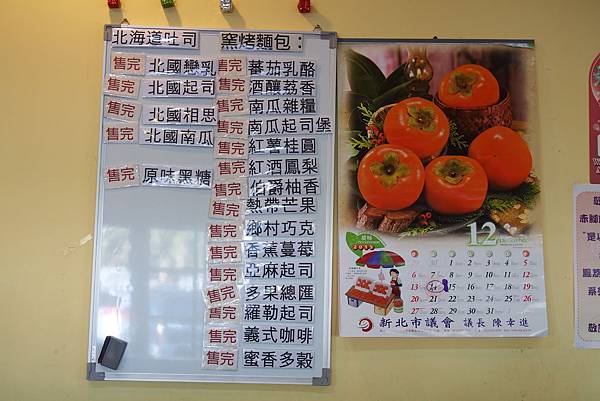 北海道吐司
售完 北國戀乳
售完 北國起司
售完 北國相思
售完 北國南瓜
售完 原味黑糖
窯烤麵包:
售完 蕃茄乳酪
售完 酒釀荔香
售完 南瓜雜糧
售完 南瓜起司堡
售完 紅薯桂圓
售完 紅酒鳳梨
售完 伯爵柚香
售完 熱帶芒果
售完 鄉村巧克
售完 香蕉蔓莓
售完 亞麻起司
售完 多果總匯
售完 羅勒起司
售完 義式咖啡
售完 蜜香多穀
12
2015
1 2 3 4 5
6 7 8 9 10 11 12
13 14 15 16 17 18 19
20 21 22 23 24 25 26
27 28 29 30 31
新北市議會 議長 陳幸進